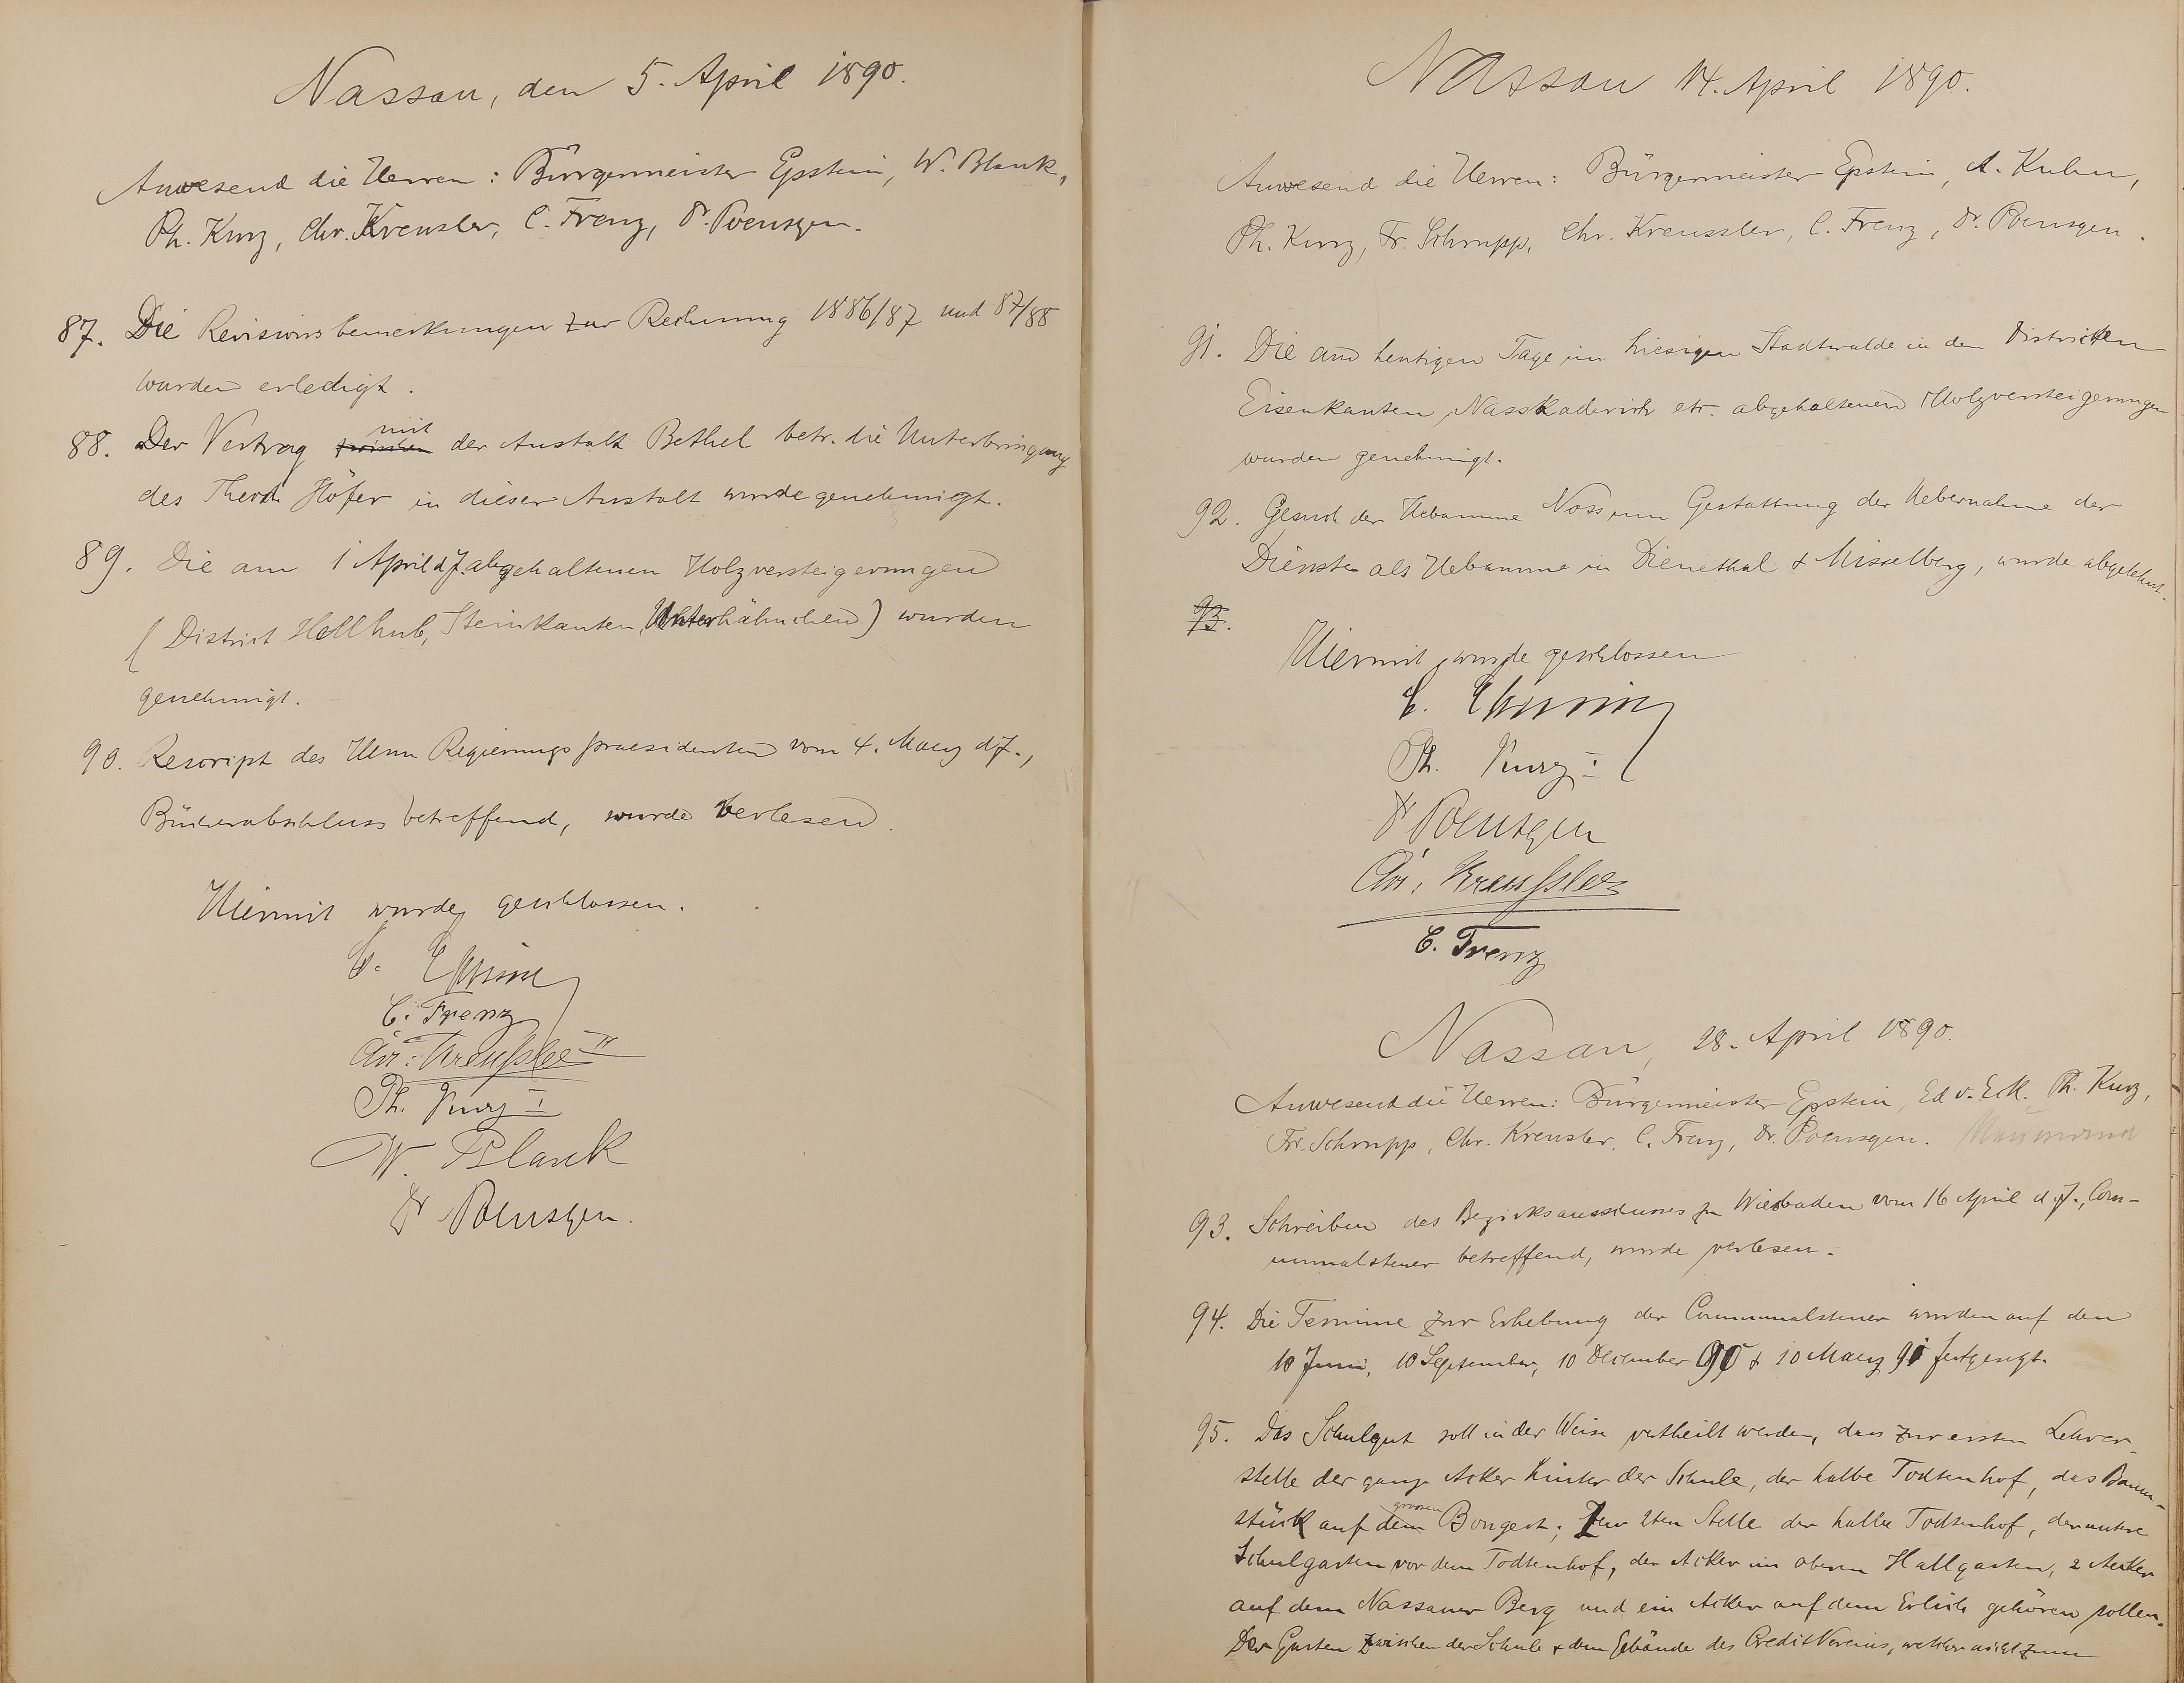 Nassau, den 5. April 1890.
Anwesend die Herren: Bürgermeister Epstein, W. Blank,
Ph. Kurz, Chr. Kreusler, C. Frenz, Dr. Poensgen.
87. Die Revisionsbemerkungen zur Rechnung 1886/87 und 87/88
wurden erledigt.
mit
88. Der Vertrag zwischen der Anstalt Bethel betr. die Unterbringung
des Theod. Höfer in dieser Anstalt wurde genehmigt.
89. Die am 1 April d J. abgehaltenen Holzversteigerungen
(District Hollhub, Steinkauten, Unterhähnchen) wurden
genehmigt.
90. Rescript des Herrn Regierungspraesidenten vom 4. Maerz d J.,
Bücherabschluss betreffend, wurde verlesen.
Hiermit wurde geschlossen.
E. Epstein
C. Frenz
Chr: Kreußler II
Ph. Kurz I
W. Blank
Dr Poensgen.
Nassau 14. April 1890.
Anwesend die Herren: Bürgermeister Epstein, A. Kuhn,
Ph. Kurz, Fr. Schrupp, Chr. Kreussler, C. Frenz, Dr. Poensgen.
91. Die am heutigen Tage im hiesigen Stadtwalde in den Districten
Eisenkauten, Nasskaderich etc. abgehaltenen Holzversteigerungen
wurden genehmigt.
92. Gesuch der Hebamme Noss, um Gestattung der Uebernahme der
Dienste als Hebamme in Dienethal & Misselberg, wurde abgelehnt.
93.
Hiermit wurde geschlossen
E. Epstein
Ph. Kurz I
Dr Poensgen
Chr: Kreußler
C. Frenz
Nassau, 28. April 1890.
Anwesend die Herren: Bürgermeister Epstein, Ed v. Eck. Ph. Kurz,
Fr. Schrupp, Chr. Kreusler, C. Frenz, Dr. Poensgen.
93. Schreiben des Bezirksausschusses zu Wiesbaden vom 16 April d. J., Com-
munalsteuer betreffend, wurde verlesen.
94. Die Termine zur Erhebung der Communalsteuer wurden auf den
10 Juni, 10 September, 10 December 90 & 10 Maerz 91 festgesetzt.
95. Das Schulgut soll in der Weise vertheilt werden, dass zur ersten Lehrer-
stelle der ganze Acker hinter der Schule, der halbe Todtenhof, das Baum-
grossen
stück auf dem Bongert; Zur 2ten Stelle der halbe Todtenhof, der untere
Schulgarten vor dem Todtenhof, der Acker im oberen Hallgarten, 2 Aecker
auf dem Nassauer Berg und ein Acker auf dem Erlich gehören sollen.
Der Garten zwischen der Schule & dem Gebäude des Credit Vereins, welcher nicht zum